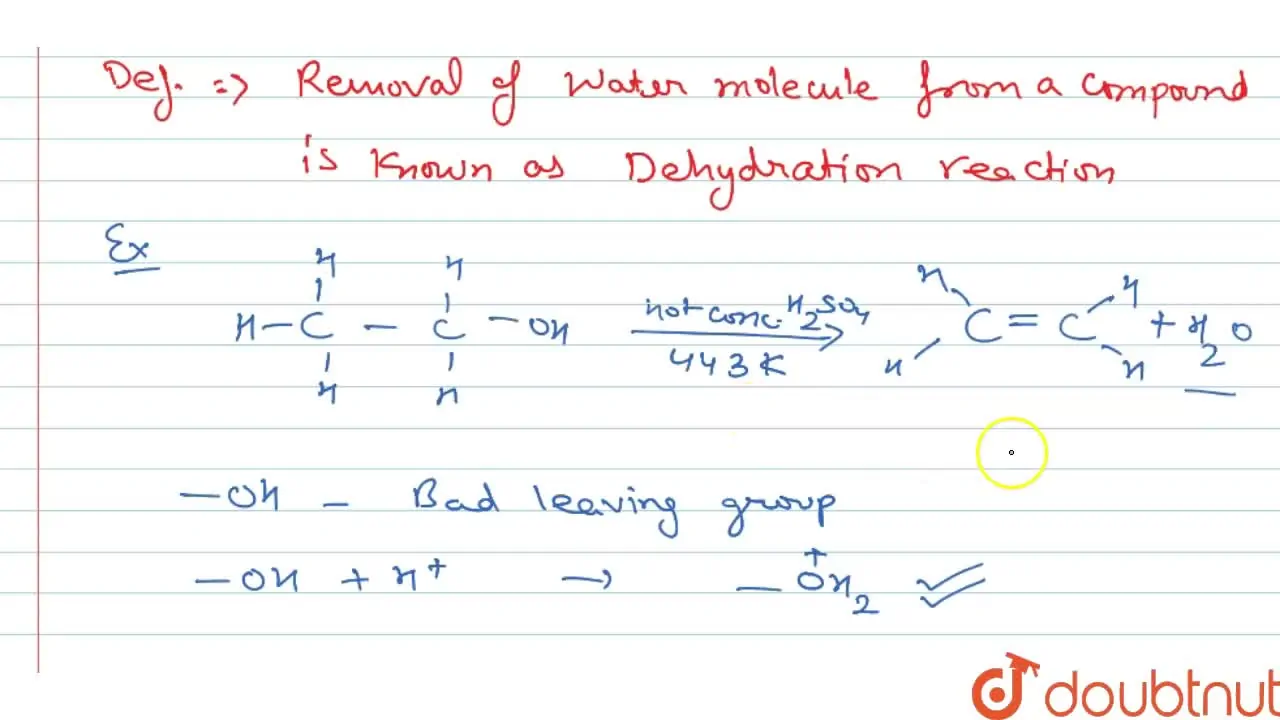 Def. => Removal of Water molecule from a compound
is known as Dehydration reaction
Ex
H H
H – C – C – OH hot conc. H2SO4 443 K H H C = C H H + H2O
H H
– OH – Bad leaving group
– OH + H+ → – O+H2
doubtnut